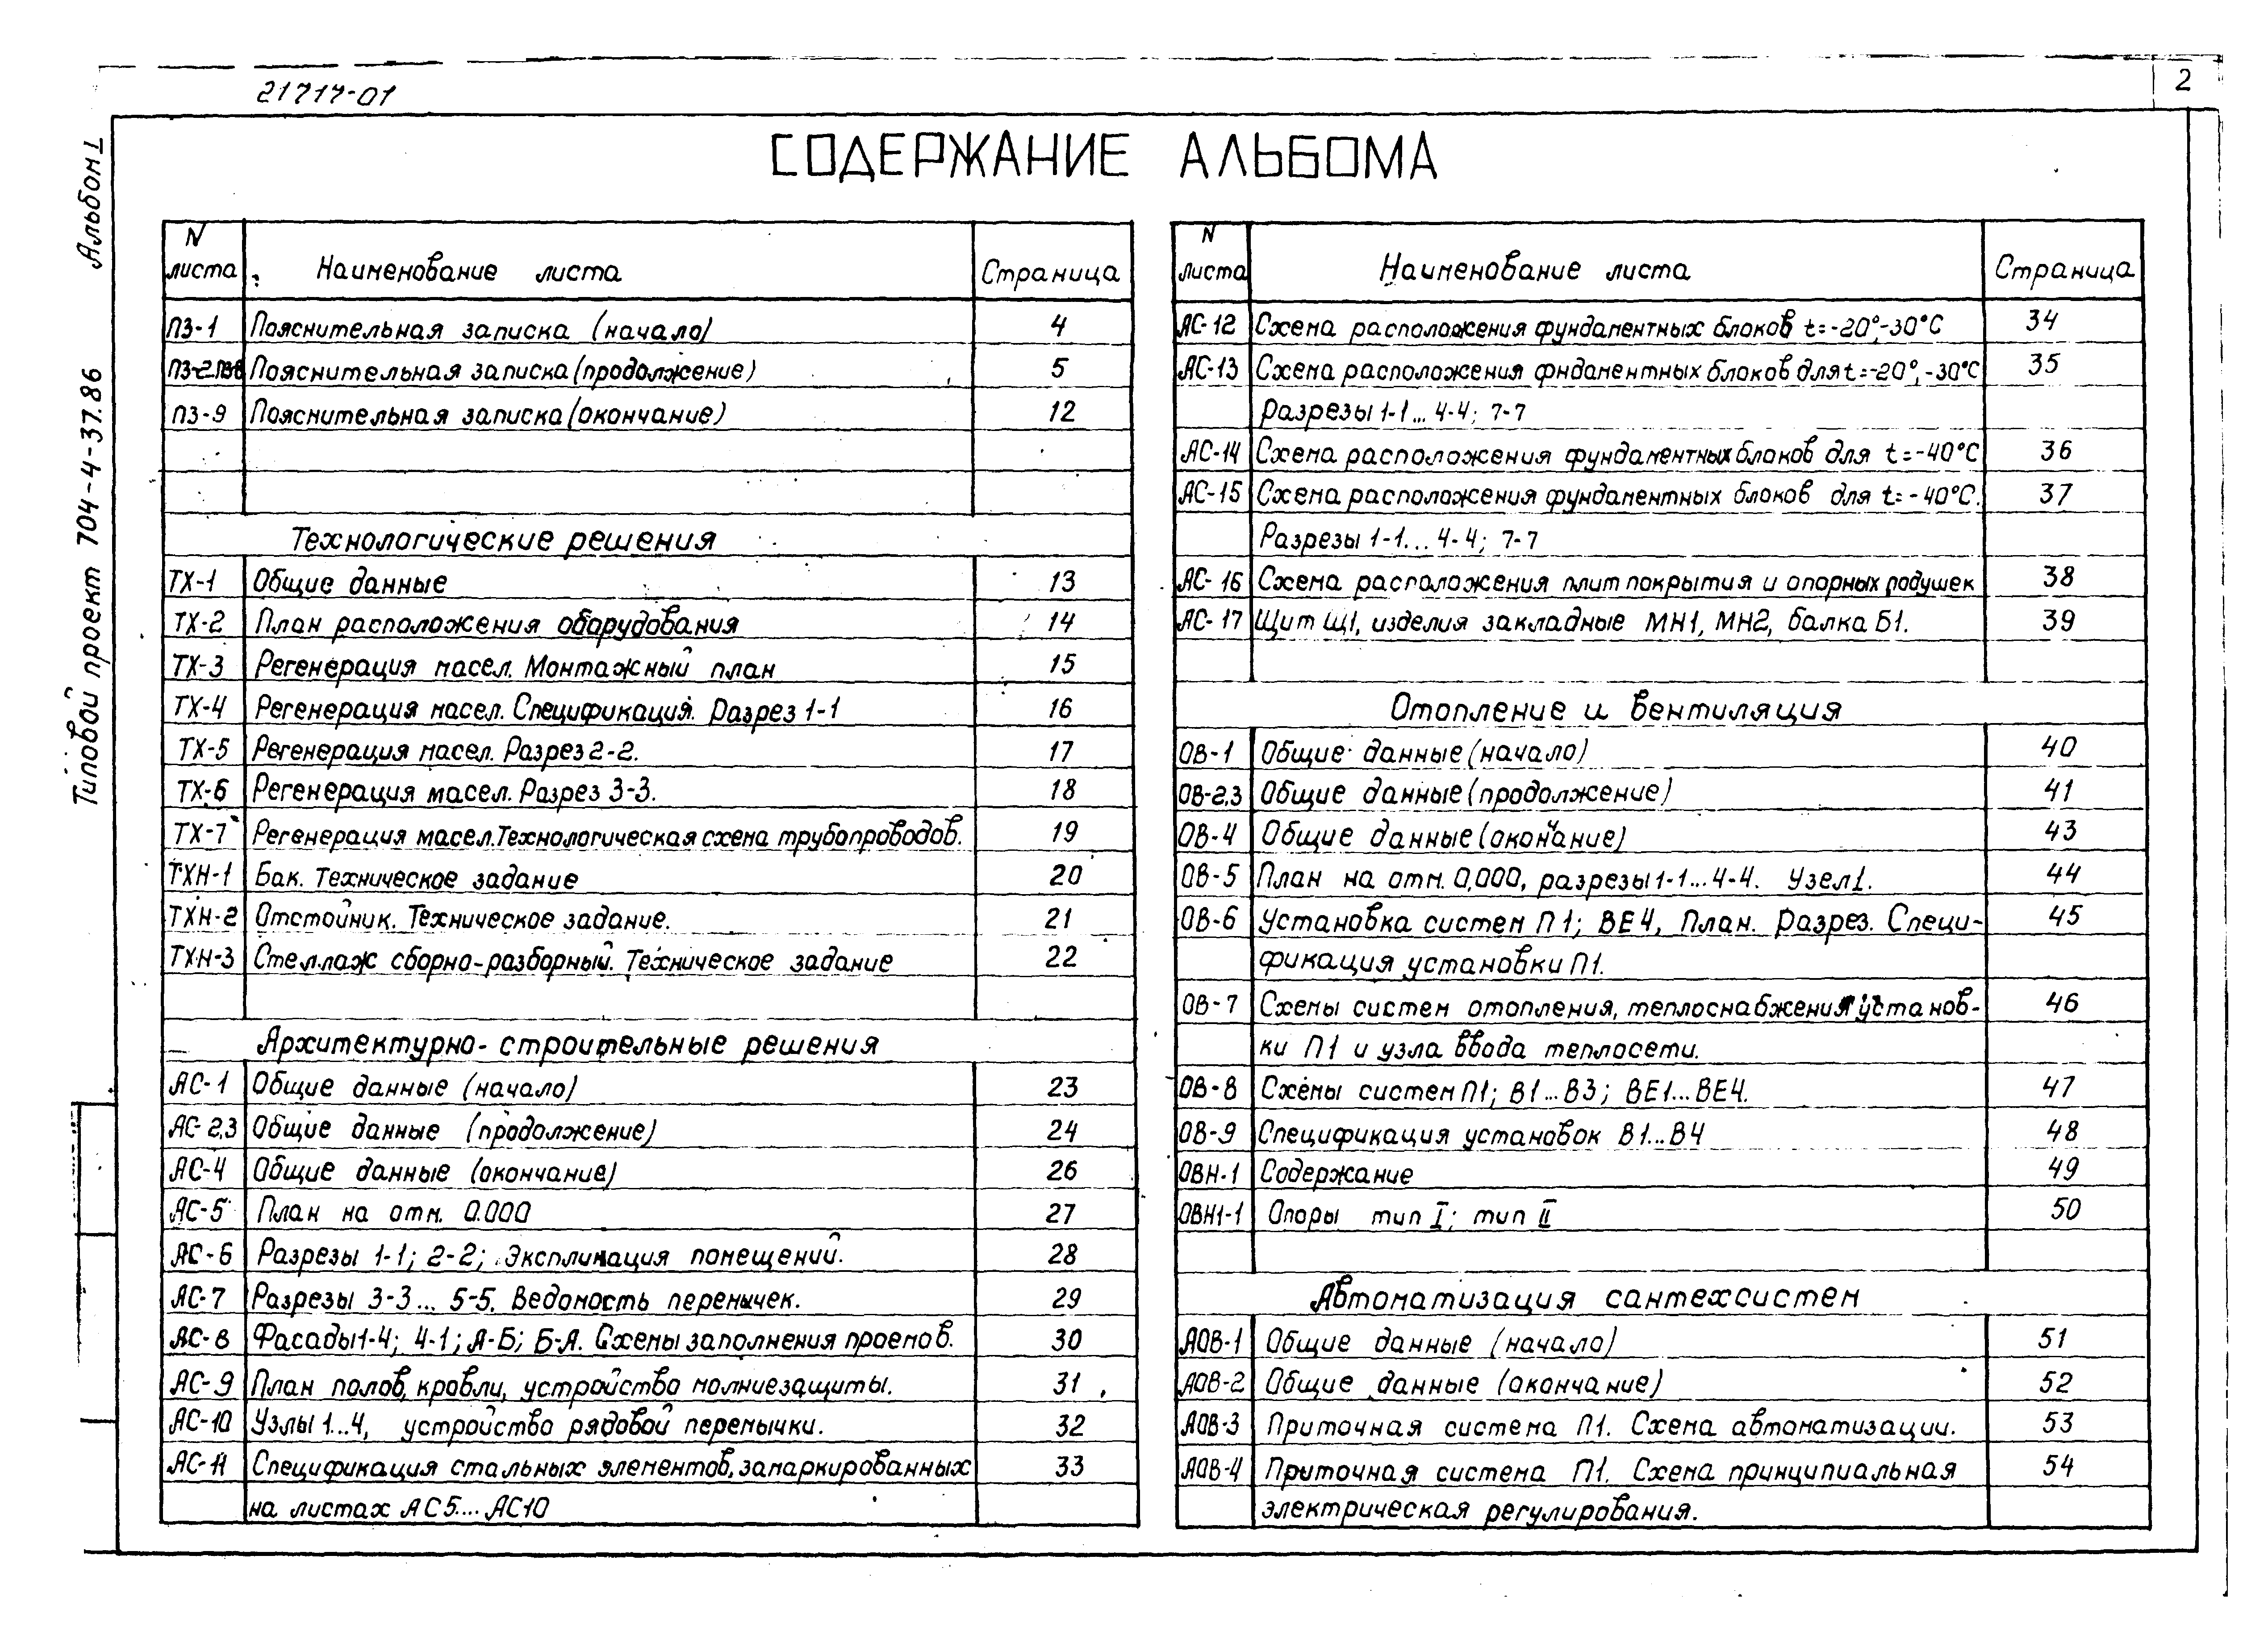 21717-01
2
Альбом I
Типовой проект 704-4-37.86
СОДЕРЖАНИЕ АЛЬБОМА
N листа Наименование листа Страница
ПЗ-1 Пояснительная записка (начало) 4
Пояснительная записка (продолжение) 5
ПЗ-9 Пояснительная записка (окончание) 12
Технологические решения
ТХ-1 Общие данные 13
ТХ-2 План расположения оборудования 14
ТХ-3 Регенерация масел. Монтажный план 15
ТХ-4 Регенерация масел. Спецификация. Разрез 1-1 16
ТХ-5 Регенерация масел. Разрез 2-2. 17
ТХ-6 Регенерация масел. Разрез 3-3. 18
ТХ-7 Регенерация масел. Технологическая схема трубопроводов. 19
ТХН-1 Бак. Техническое задание 20
ТХН-2 Отстойник. Техническое задание. 21
ТХН-3 Стеллаж сборно-разборный. Техническое задание 22
Архитектурно-строительные решения
АС-1 Общие данные (начало) 23
АС-2,3 Общие данные (продолжение) 24
АС-4 Общие данные (окончание) 26
АС-5 План на отм. 0.000 27
АС-6 Разрезы 1-1; 2-2; Экспликация помещений. 28
АС-7 Разрезы 3-3... 5-5. Ведомость перемычек. 29
АС-8 Фасады 1-4; 4-1; А-Б; Б-А. Схемы заполнения проемов. 30
АС-9 План полов, кровли, устройство молниезащиты. 31
АС-10 Узлы 1...4, устройство рядовой перемычки. 32
АС-11 Спецификация стальных элементов, замаркированных 33
на листах АС5.... АС10
N листа Наименование листа Страница
АС-12 Схема расположения фундаментных блоков t=-20°,-30°С 34
АС-13 Схема расположения фндаментных блоков для t=-20°,-30°С 35
Разрезы 1-1... 4-4; 7-7
АС-14 Схема расположения фундаментных блоков для t=-40°С 36
АС-15 Схема расположения фундаментных блоков для t=-40°С. 37
Разрезы 1-1... 4-4; 7-7
АС-16 Схема расположения плит покрытия и опорных подушек 38
АС-17 Щит Щ1, изделия закладные МН1, МН2, балка Б1. 39
Отопление и вентиляция
ОВ-1 Общие данные (начало) 40
ОВ-2,3 Общие данные (продолжение) 41
ОВ-4 Общие данные (окончание) 43
ОВ-5 План на отм. 0,000, разрезы 1-1...4-4. Узел 1. 44
ОВ-6 Установка систем П1; ВЕ4, План. Разрез. Специ- 45
фикация установки П1.
ОВ-7 Схемы систем отопления, теплоснабжения установ- 46
ки П1 и узла ввода теплосети.
ОВ-8 Схемы систем П1; В1...В3; ВЕ1...ВЕ4. 47
ОВ-9 Спецификация установок В1...В4 48
ОВН-1 Содержание 49
ОВН1-1 Опоры тип I; тип II 50
Автоматизация сантехсистем
АОВ-1 Общие данные (начало) 51
АОВ-2 Общие данные (окончание) 52
АОВ-3 Приточная система П1. Схема автоматизации. 53
АОВ-4 Приточная система П1. Схема принципиальная 54
электрическая регулирования.